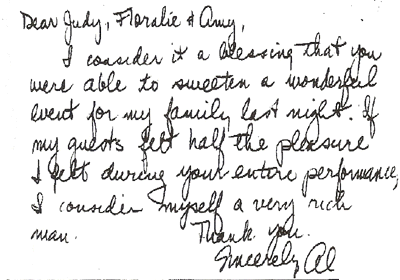 Dear Judy, Floralie & Amy,
I consider it a blessing that you
were able to sweeten a wonderful
event for my family last night. If
my guests felt half the pleasure
I felt during your entire performance,
I consider myself a very rich
man. Thank you.
Sincerely Al